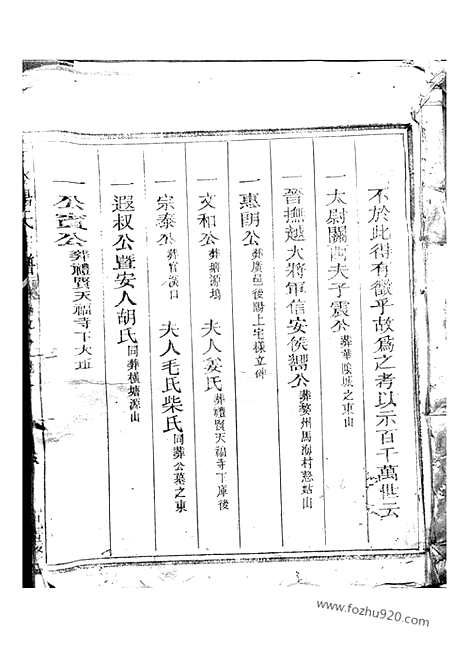 不於此得有徵乎故為之考以示百千萬世云
一太尉關西夫子震公葬華陰城之東山
一晉撫越大將軍信安侯躅公葬婺州馬海村慈姑山
一惠朗公葬廣邑後陽上宅椽立碑
一文和公葬塘源塢 夫人姜氏葬禮賢天福寺下庫後
一宗泰公葬官溪口 夫人毛氏柴氏同葬公墓之東
一遐叔公暨安人胡氏同葬橫塘源山
一公寶公葬禮賢天福寺下大
www.fozhu920.com